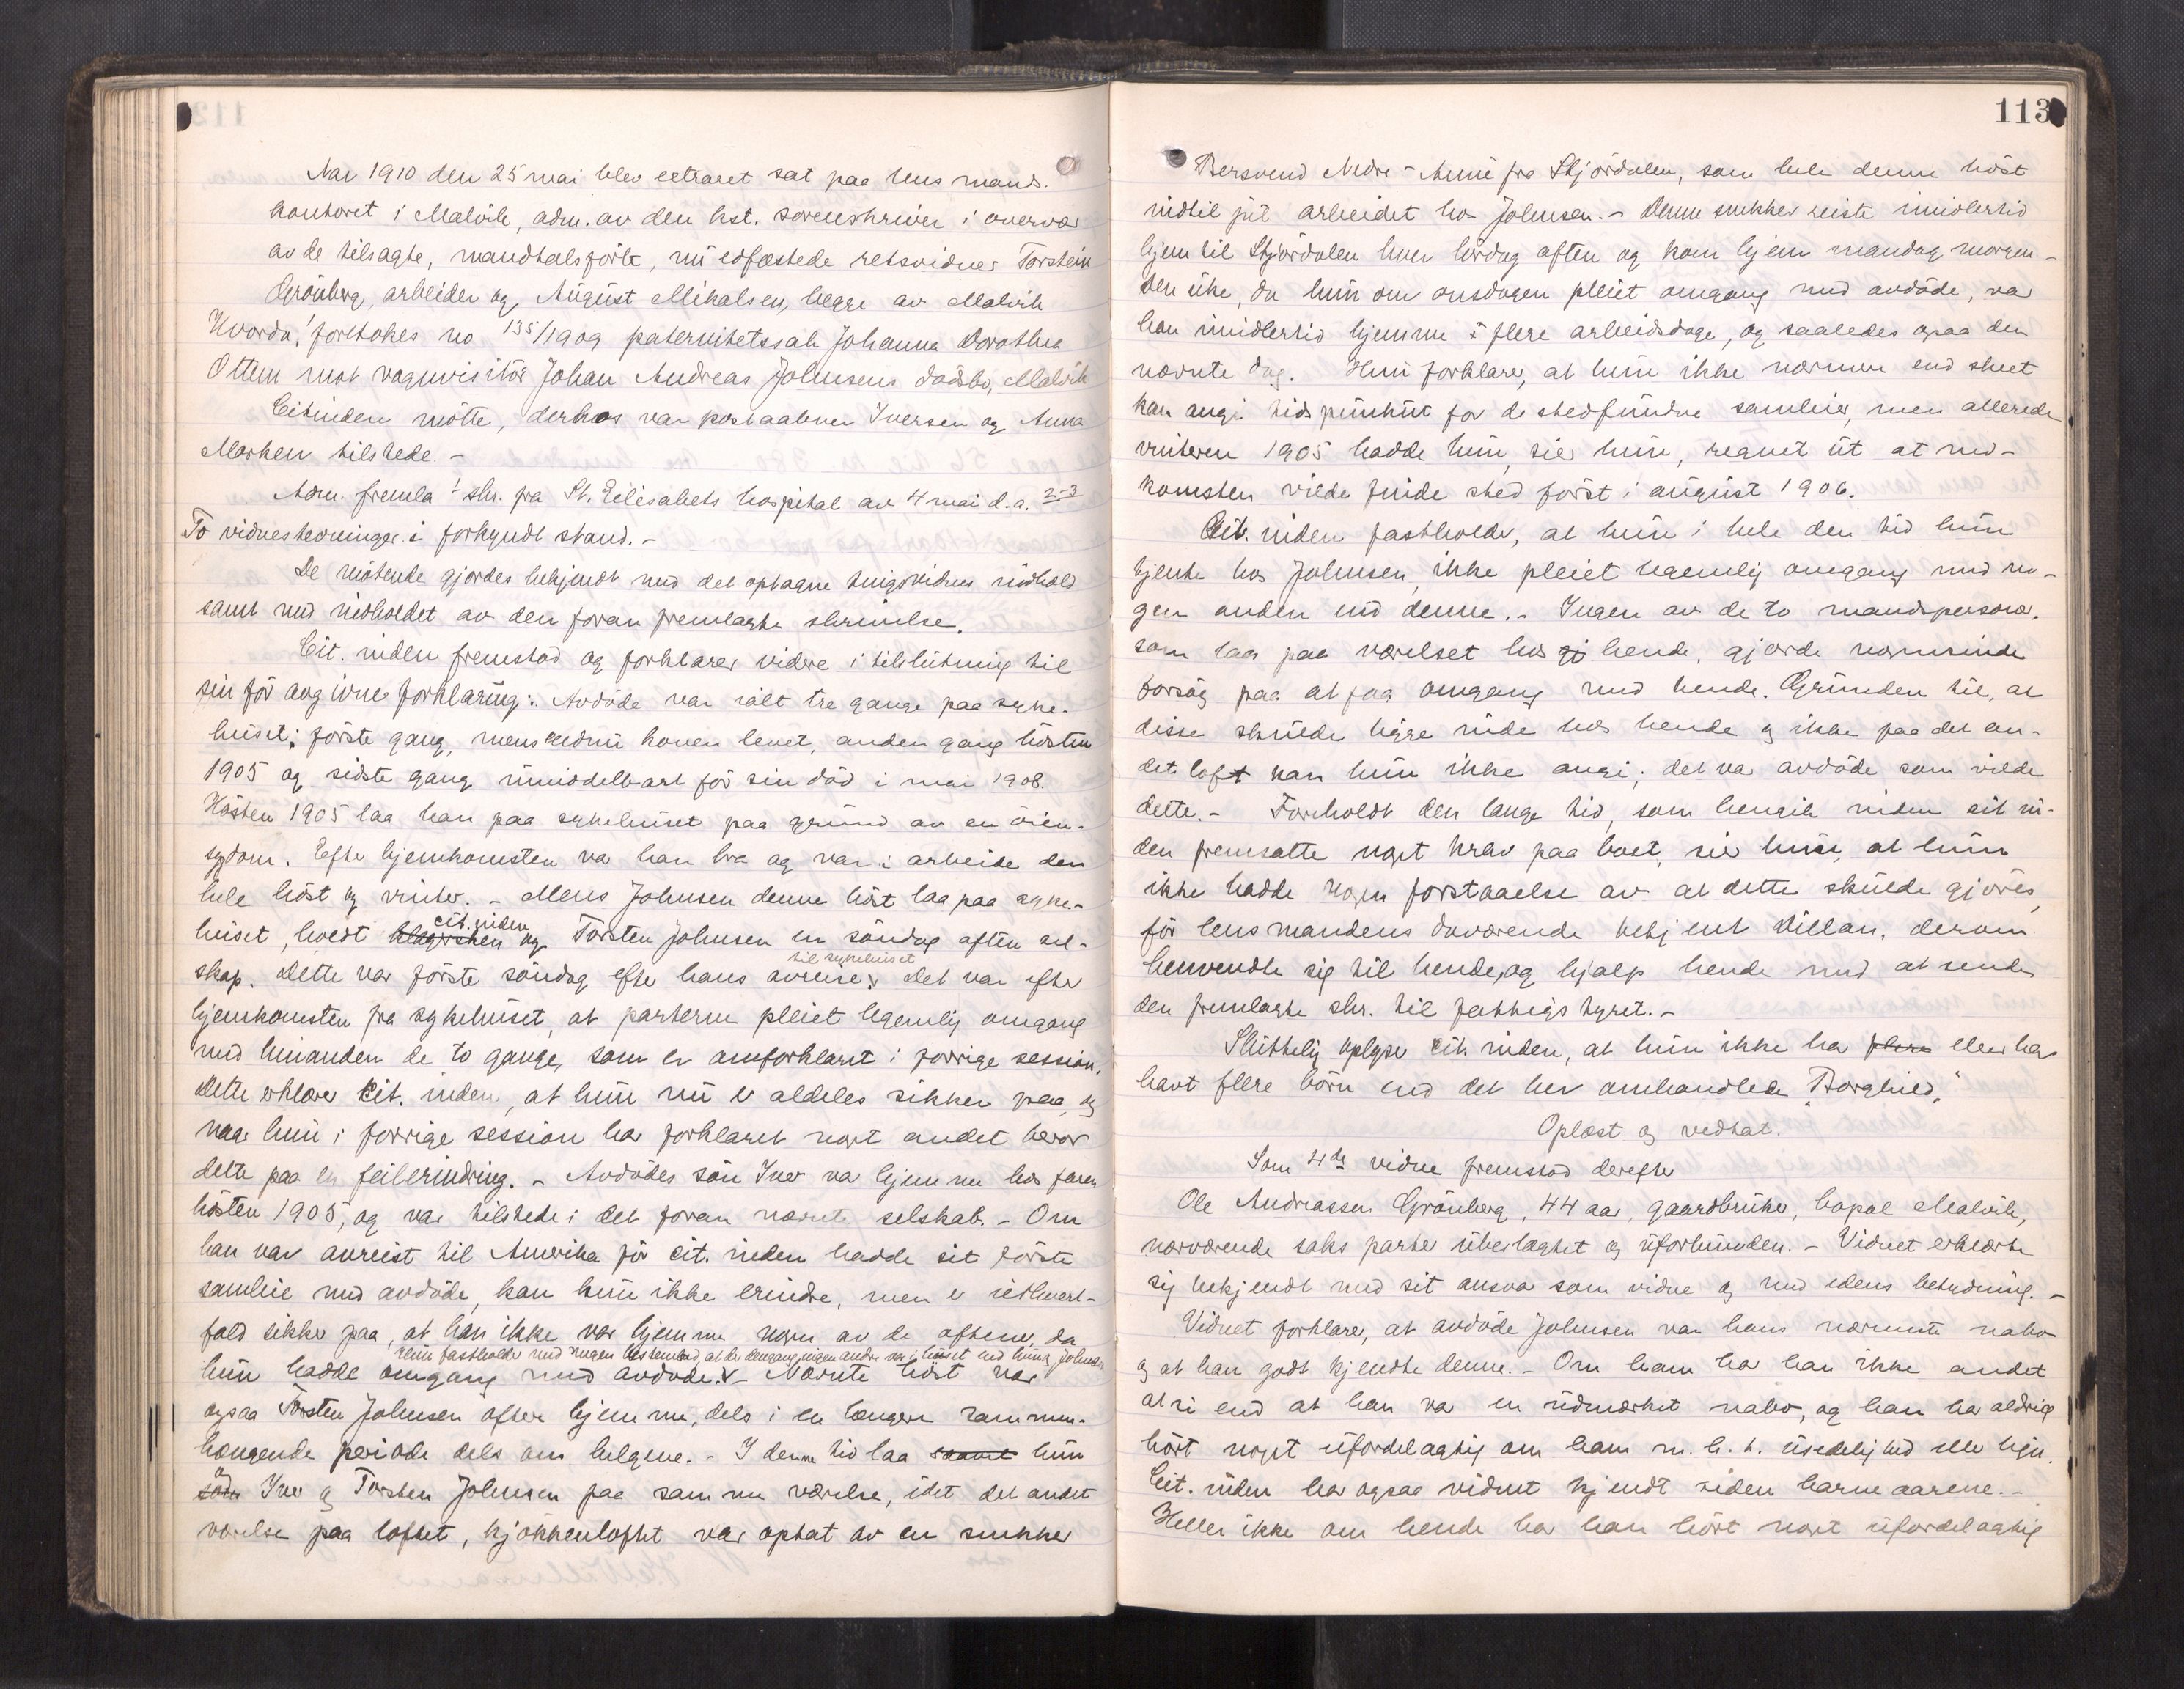 113
Aar 1910 den 25 mai blev extraret sat paa lens mands.
kontoret i Malvik, adm. av den kst. sorenskriver i overvær
av de tilsagte, mandtalsførte, nu edfæstede retsvidner Torstein
Grönberg, arbeider og August Mikalsen, begge av Malvik
Hvorda! foretokes no 135/1909 paternitetssak Johanna Dorothea
Ottem mot vognvisitör Johan Andreas Johnsens dödsbo, Malvik
Citinden mötte, derhos var postaabner Iversen og Anna
Marken tilstede -
Adm. fremla ! skr. fra St. Elisabets hospital av 4 mai d.a. 2-3
To vidnestevninger i forkyndt stand. -
De mötende gjordes bekjendt med det optagne tingsvidnes indhold
samt med indholdet av den foran fremlagte skrivelse.
Cit. inden fremstod og forklarer videre i tilslutning til
sin för avgivne forklaring: Avdöde var ialt tre gange paa syke-
huset; förste gang, mens endnu konen levet, anden gang hösten
1905 og sidste gang umiddelbart för sin död i mai 1908.
Hösten 1905 laa han paa sykehuset paa grund av en öien-
sygdom. Efter hjemkomsten va han bra og var i arbeide den
hele höst og vinter. - Mens Johnsen denne höst laa paa syke-
huset, holdt klagersken cit. inden og Torsten Johnsen en söndag aften sel-
skap. Dette var förste söndag efter hans avreise til sykehuset. Det var efter
hjemkomsten fra sykehuset, at parterne pleiet legemlig omgang
med hinanden de to gange, som er omforklaret i forrige session.
Dette erklærer cit. inden, at hun nu er aldeles sikker paa, og
naar hun i forrige session har forklaret noget andet beror
dette paa en feilerindring. - Avdödes sön Iver va hjemme hos faren
hösten 1905, og var tilstede i det foran nævnte selskab. - Om
han var avreist til Amerika för cit. inden hadde sit förste
samleie med avdöde, kan hun ikke erindre, men er iethvert-
fald sikker paa, at han ikke var hjemme nogen av de aftener, da
hun hadde omgang med avdöde. Hun fastholder med megen bestemthed at der dengang ingen andre var i huset end hun og Johnsen - Nævnte höst var
ogsaa Torsten Johnsen ofte hjemme, dels i en længere sammen-
hængende periode dels om helgene. - I denne tid laa saavel hun
som og Iver og Torsten Johnsen paa samme værelse, idet det andet
værelse paa loftet, kjökkenloftet var optat av en snekker
Bersvend Nedre-Aune fra Stjördalen, som hele denne höst
indtil jul arbeidet hos Johnsen. - Denne snekker reiste imidlertid
hjem til Stjördalen hver lördag aften og kom hjem mandag morgen -
Den uke, da hun om onsdagen pleiet omgang med avdöde, var
han imidlertid hjemme i flere arbeidsdage, og saaledes ogsaa den
nævnte dag. Hun forklarer, at hun ikke nærmere end skeet
kan angi tidspunktet for de stedfundne samleier, men allerede
vinteren 1905 hadde hun, sier hun, regnet ut at ned-
komsten vilde finde sted först i august 1906.
Cit. inden fastholder, at hun i hele den tid hun
tjente hos Johnsen, ikke pleiet legemlig omgang med no-
gen anden end denne. - Ingen av de to mandspersoner,
som laa paa værelset hos gj hende, gjorde nogensinde
forsög paa at faa omgang med hende. Grunden til, at
disse skulde ligge inde hos hende og ikke paa det an-
det loft kan hun ikke angi; det var avdöde som vilde
dette. - Foreholdt den lange tid, som hengik inden cit in-
den fremsatte noget krav paa boet, sier hun, at hun
ikke hadde nogen forstaaelse av at dette skulde gjöres,
för lensmandens daværende betjent Villan, derom
henvendte sig til hende, og hjalp hende med at sende
den fremlagte skr. til fattigstyret. -
Sluttelig oplyser cit. inden, at hun ikke har flere eller har
havt flere börn end det her omhandlede "Borghild."
Oplæst og vedtat.
Som 4de vidne fremstod derefter
Ole Andreassen Grönberg, 44 aar, gaardbruker, bopæl Malvik,
nærværende saks parter ubeslægtet og uforbunden. - Vidnet erklærte
sig bekjendt med sit ansvar som vidne og med edens betydning. -
Vidnet forklarer, at avdöde Johnsen var hans nærmeste nabo
og at han godt kjendte denne. - Om ham har han ikke andet
at si end at han va en udmærket nabo, og han har aldrig
hört noget ufordelagtig om ham m. h. t. usedelighed eller lign.
Cit. inden har ogsaa vidnet kjendt siden barneaarene. -
Heller ikke om hende har han hört noget ufordelagtig